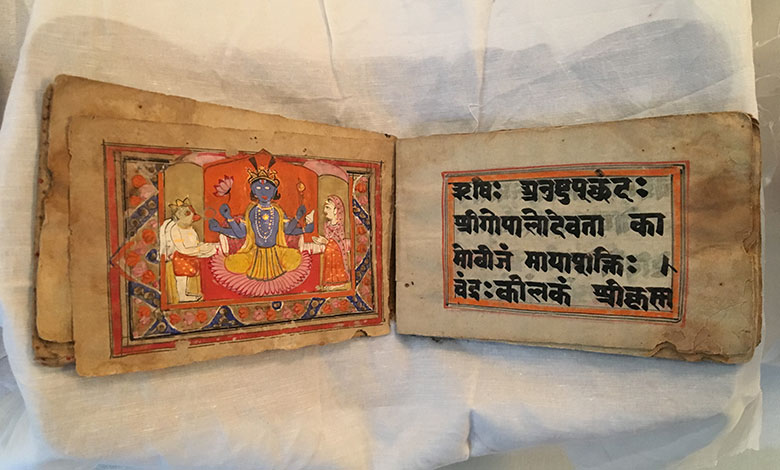 ऋषिः अनुष्टुप्छंदः
श्रीगोपालोदेवता का
मोबीजं मायाशक्तिः ।
चंद्रः कीलकं श्रीकृष्ण